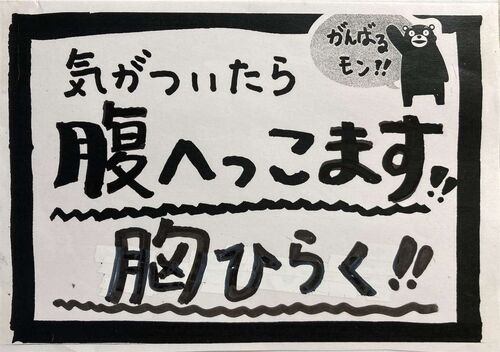 がんばる
モン!!
気がついたら
腹へっこます!!
胸ひらく!!